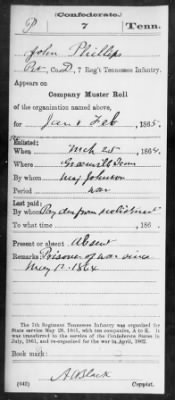 (Confederate.)
P 7 Tenn.
John Phillips
Pvt, Co. D, 7 Reg't Tennessee Infantry.
Appears on
Company Muster Roll
of the organization named above,
for Jan & Feb, 1865.
Enlisted:
When Mch 25, 1864.
Where Tenn
By whom Maj Johnson
Period war
Last paid:
By whom
To what time , 186 .
Present or absent Absent
Remarks: Prisoner of war since
May 12 1864
The 7th Regiment Tennessee Infantry was organized for
State service May 25, 1861, with ten companies, A to K. It
was transferred to the service of the Confederate States in
July, 1861, and re-organized for the war in April, 1862.
Book mark:
(642) A Black
Copyist.